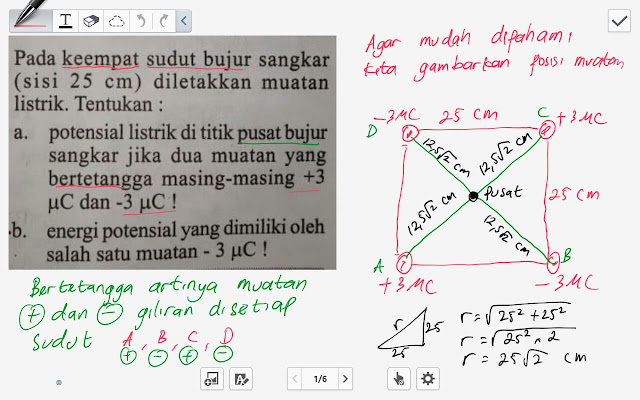 Pada keempat sudut bujur sangkar
(sisi 25 cm) diletakkan muatan
listrik. Tentukan :
a. potensial listrik di titik pusat bujur
sangkar jika dua muatan yang
bertetangga masing-masing +3
μC dan -3 μC !
b. energi potensial yang dimiliki oleh
salah satu muatan - 3 μC !
Bertetangga artinya muatan
+ dan - giliran disetiap
sudut A, B, C, D
+ - + -
Agar mudah dipahami
kita gambarkan posisi muatan
-3 μC 25 cm C +3 μC
D
12,5√2 cm 12,5√2 cm
pusat 25 cm
12,5√2 cm 12,5√2 cm
A B
+3 μC -3 μC
r 25
25
r = √25² + 25²
r = √25² × 2
r = 25√2 cm
1/6